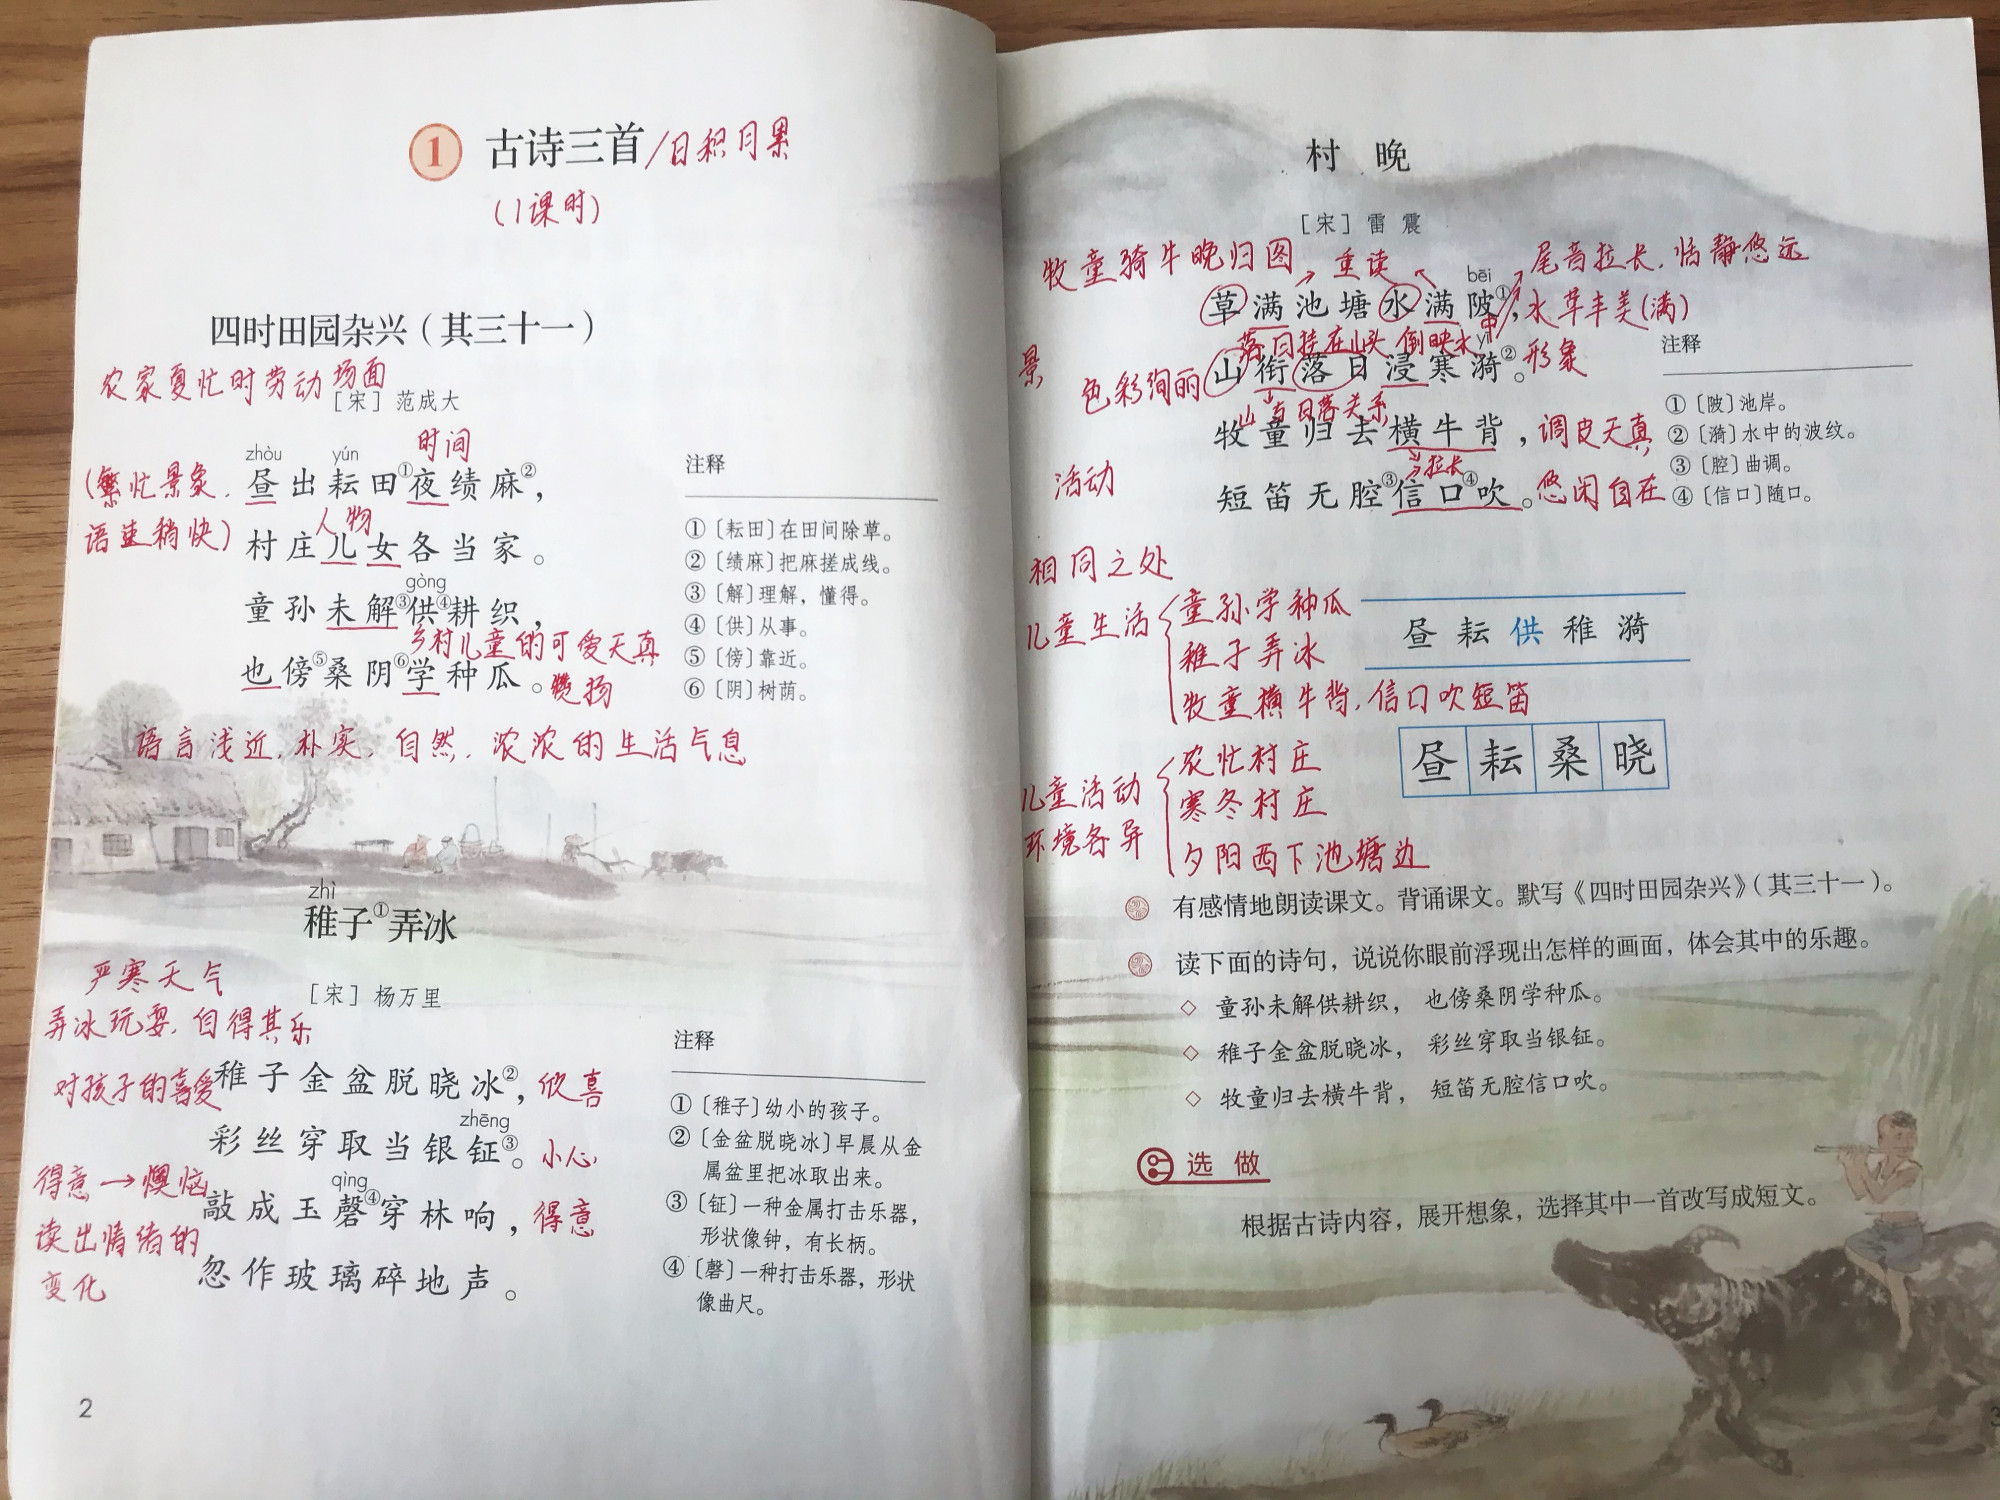 1 古诗三首/日积月累
(1课时)
四时田园杂兴（其三十一）
农家夏忙时劳动场面
［宋］范成大
时间
zhòu yún
(繁忙景象.
昼出耘田①夜绩麻②，
语速稍快)
人物
村庄儿女各当家。
gòng
童孙未解③供④耕织，
乡村儿童的可爱天真
也傍⑤桑阴⑥学种瓜。
悠扬
语言浅近.朴实.自然.浓浓的生活气息
注释
①〔耘田〕在田间除草。
②〔绩麻〕把麻搓成线。
③〔解〕理解，懂得。
④〔供〕从事。
⑤〔傍〕靠近。
⑥〔阴〕树荫。
zhì
稚子①弄冰
严寒天气
［宋］杨万里
弄冰玩耍.自得其乐
对孩子的喜爱
稚子金盆脱晓冰②，欣喜
zhēng
彩丝穿取当银钲③。小心
得意→懊恼
qìng
敲成玉磬④穿林响，得意
读出情绪的
变化
忽作玻璃碎地声。
注释
①〔稚子〕幼小的孩子。
②〔金盆脱晓冰〕早晨从金
属盆里把冰取出来。
③〔钲〕一种金属打击乐器，
形状像钟，有长柄。
④〔磬〕一种打击乐器，形状
像曲尺。
2
村晚
［宋］雷震
牧童骑牛晚归图
重读
尾音拉长.恬静悠远
bēi
草满池塘水满陂①，水草丰美(满)
落日挂在山头 倒映水中
yī
景
色彩绚丽
山衔落日浸寒漪②。形象
山与日落关系
牧童归去横牛背，调皮天真
拉长
活动
短笛无腔③信口④吹。悠闲自在
注释
①〔陂〕池岸。
②〔漪〕水中的波纹。
③〔腔〕曲调。
④〔信口〕随口。
相同之处
儿童生活
童孙学种瓜
稚子弄冰
牧童横牛背.信口吹短笛
昼耘供稚漪
昼耘桑晓
儿童活动
环境各异
农忙村庄
寒冬村庄
夕阳西下池塘边
有感情地朗读课文。背诵课文。默写《四时田园杂兴》（其三十一）。
读下面的诗句，说说你眼前浮现出怎样的画面，体会其中的乐趣。
◇ 童孙未解供耕织，也傍桑阴学种瓜。
◇ 稚子金盆脱晓冰，彩丝穿取当银钲。
◇ 牧童归去横牛背，短笛无腔信口吹。
选做
根据古诗内容，展开想象，选择其中一首改写成短文。
3